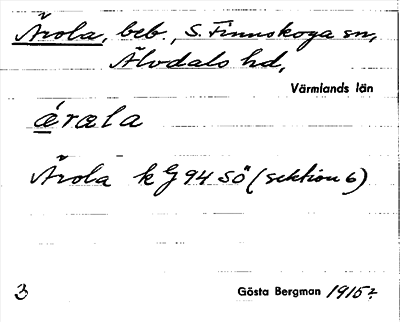 Ärola, beb., S. Finnskoga sn,
Älvdals hd,
Värmlands län
ǽrœla
Ärola kG 94 SÖ (sektion 6)
3
Gösta Bergman 1915?